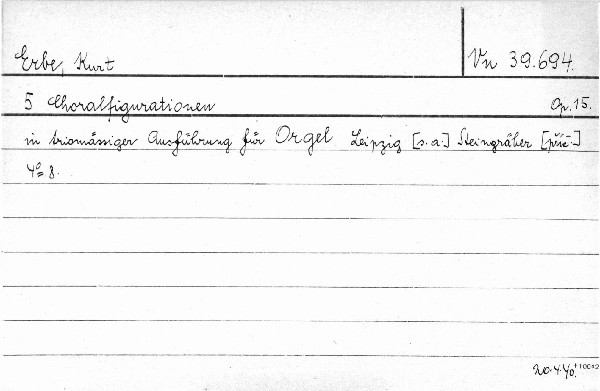 Erbe, Kurt
Vn 39.694.
5 Choralfigurationen Op. 15.
in triomässiger Ausführung für Orgel Leipzig [s.a.] Steingräber [příč.]
4° 8.
20.4.40. +10012